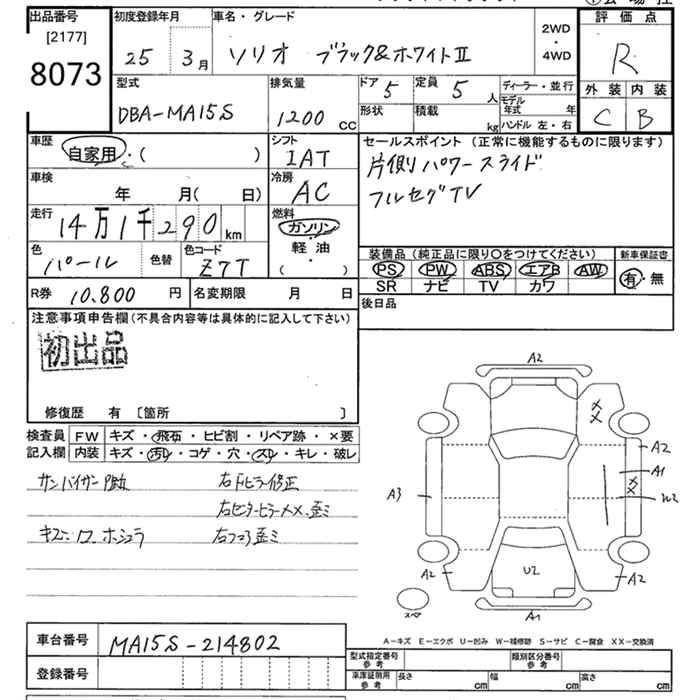 出品番号
[2177]
8073
初度登録年月
25年 3月
車名・グレード
ソリオ ブラック&ホワイトII
2WD
・
4WD
評価点
R
外装 内装
C B
型式
DBA-MA15S
排気量
1200 cc
ドア 5
定員 5 人
形状
積載 kg
ディーラー・並行
モデル年式 年
ハンドル 左・右
車歴
自家用・( )
シフト
IAT
セールスポイント (正常に機能するものに限ります)
片側パワースライド
フルセグTV
車検
年 月( 日)
冷房
AC
走行
14万1千290km
燃料
ガソリン
軽・油
( )
色
パール
色替
色コード
Z7T
装備品 (純正品に限り○をつけてください)
新車保証書
PS PW ABS エアB AW
SR ナビ TV カワ
有・無
R券 10.800 円
名変期限 月 日
後日品
注意事項申告欄 (不具合内容等は具体的に記入して下さい)
初出品
修復歴 有 [箇所 ]
検査員 FW キズ・飛石・ヒビ割・リペア跡・×要
記入欄 内装 キズ・汚れ・コゲ・穴・スレ・キレ・破レ
サンバイザー
右Fピラー修正
右センターピラーXX.歪ミ
キズ
右フロア歪ミ
A2
A2
A1
A3
W2
U2
A2
A2
A1
スペア
A-キズ E-エクボ U-凹み W-補修跡 S-サビ C-腐食 XX-交換済
車台番号 MA15S-214802
登録番号
型式指定番号
参考
類別区分番号
参考
車庫証明用
参考
長さ cm
幅 cm
高さ cm